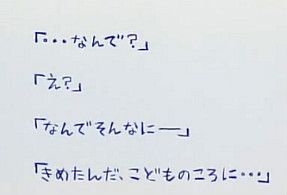 「・・・なんで?」
「え?」
「なんでそんなに──」
「きめたんだ、こどものころに・・・」